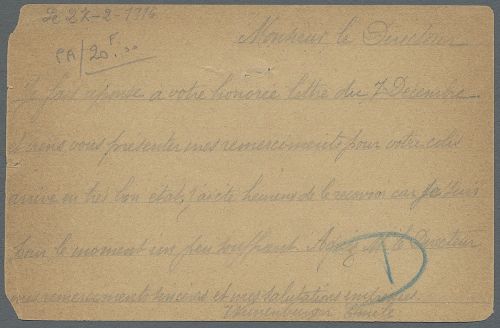 Le 27-2-1916
PA/20F.00
Monsieur le Directeur
Je fais reponse à votre honorée lettre du 7 Decembre
et viens vous presenter mes remerciments pour votre colis
arrivé en tres bon etat, j'ai été heureux de le recevoir car je suis
pour le moment un peu souffrant. Agréez M. le Directeur
mes remerciments sincères et mes salutations
Emile
D